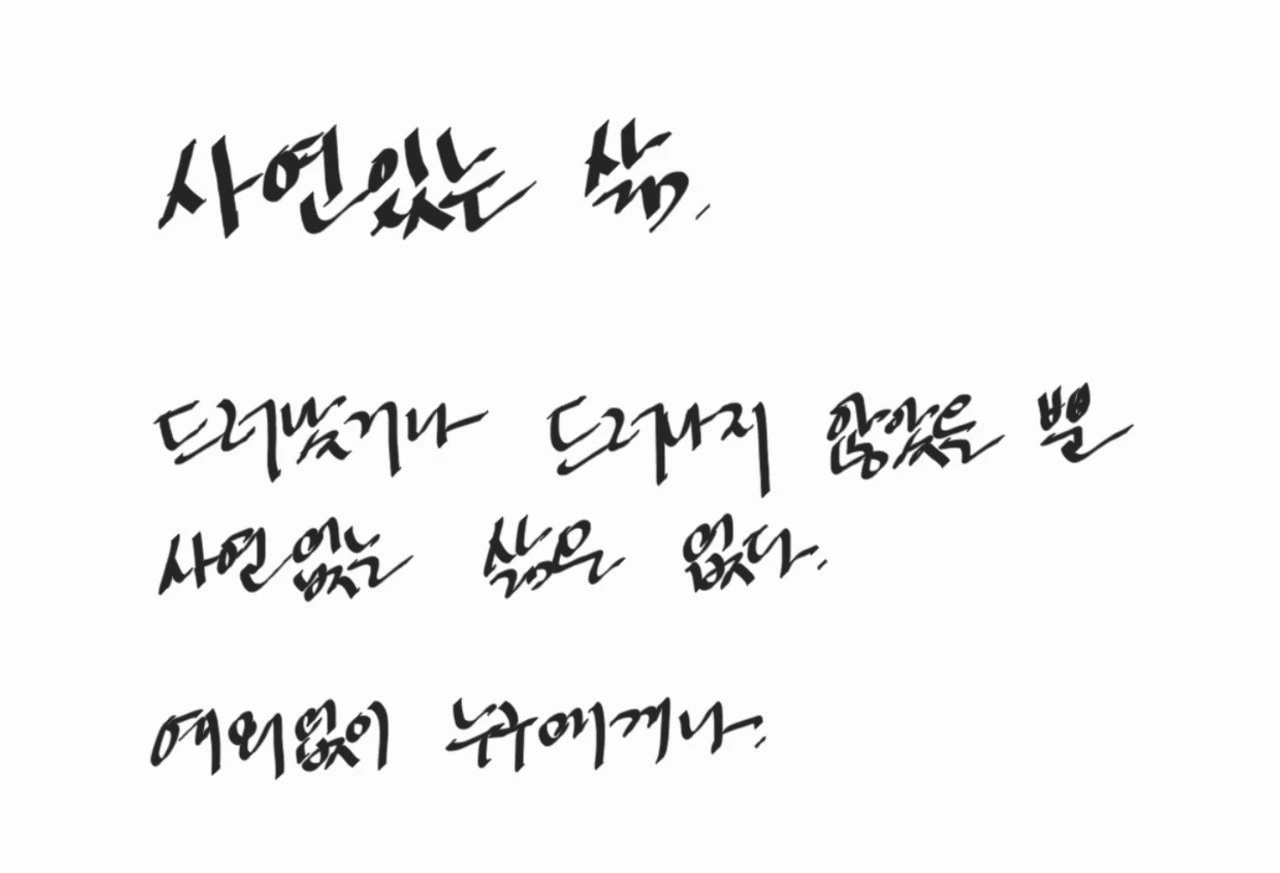 사연있는 삶.
드러났거나 드러나지 않았을 뿐
사연없는 삶은 없다.
예외없이 누구에게나.